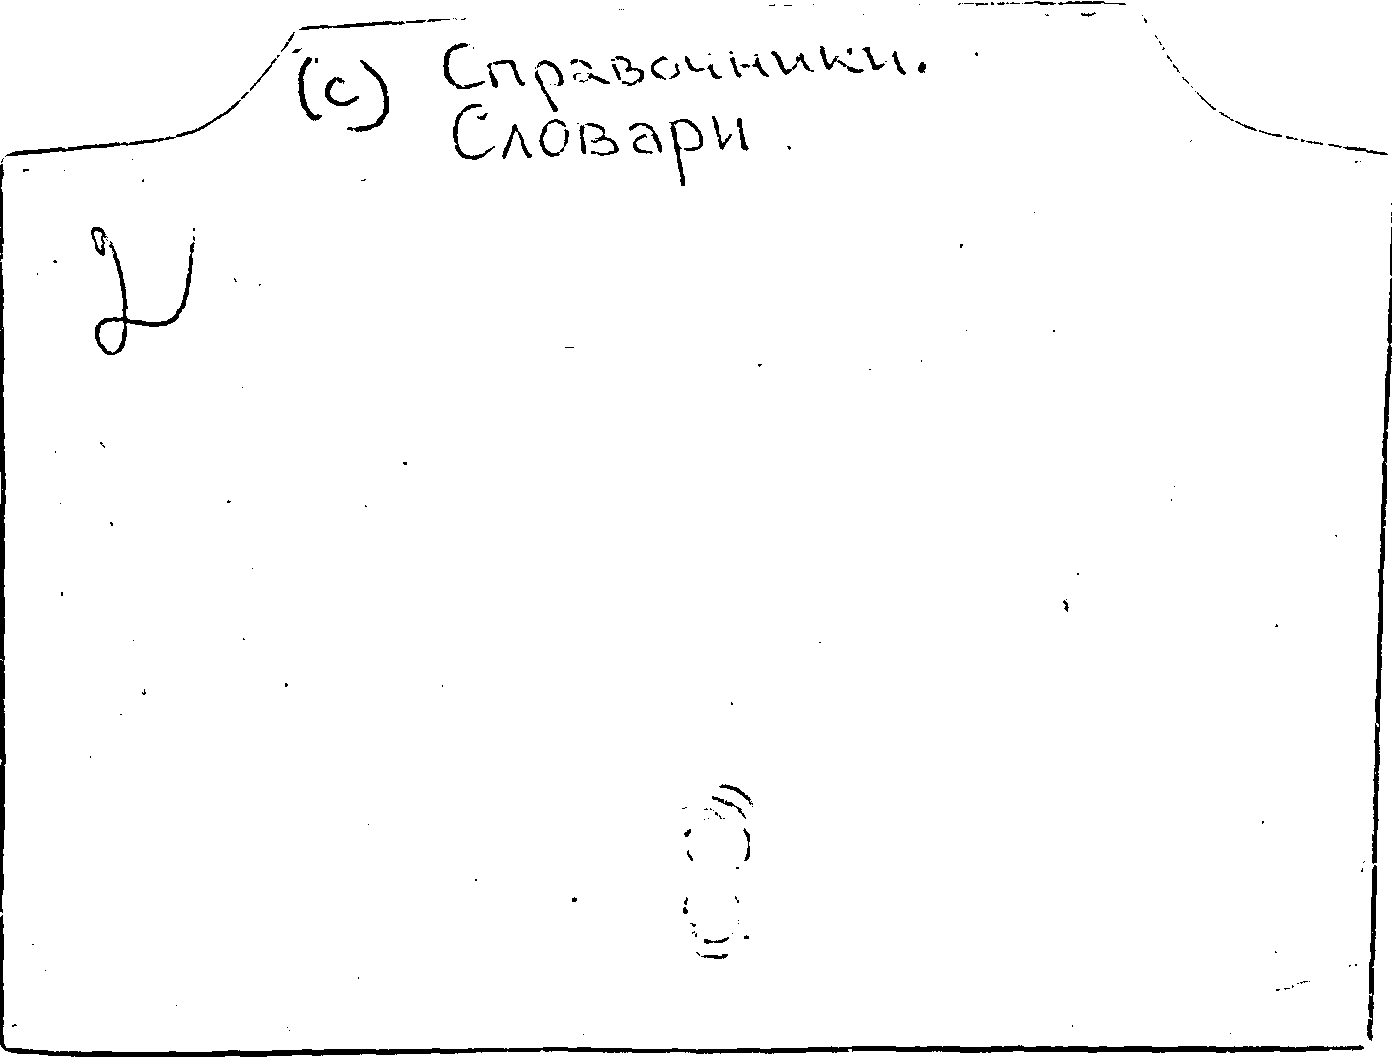 (с) Справочники.
Словари.